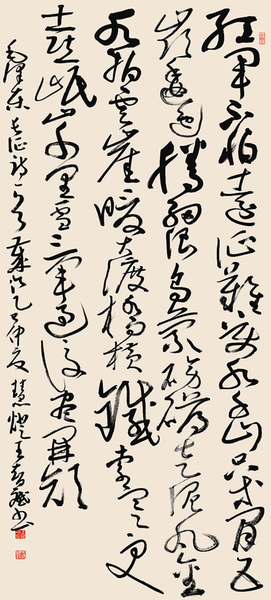 红军不怕远征难万水千山只等闲五
岭逶迤腾细浪乌蒙磅礴走泥丸金
沙水拍云崖暖大渡桥横铁索寒更
喜岷山千里雪三军过后尽开颜
毛泽东长征诗一首